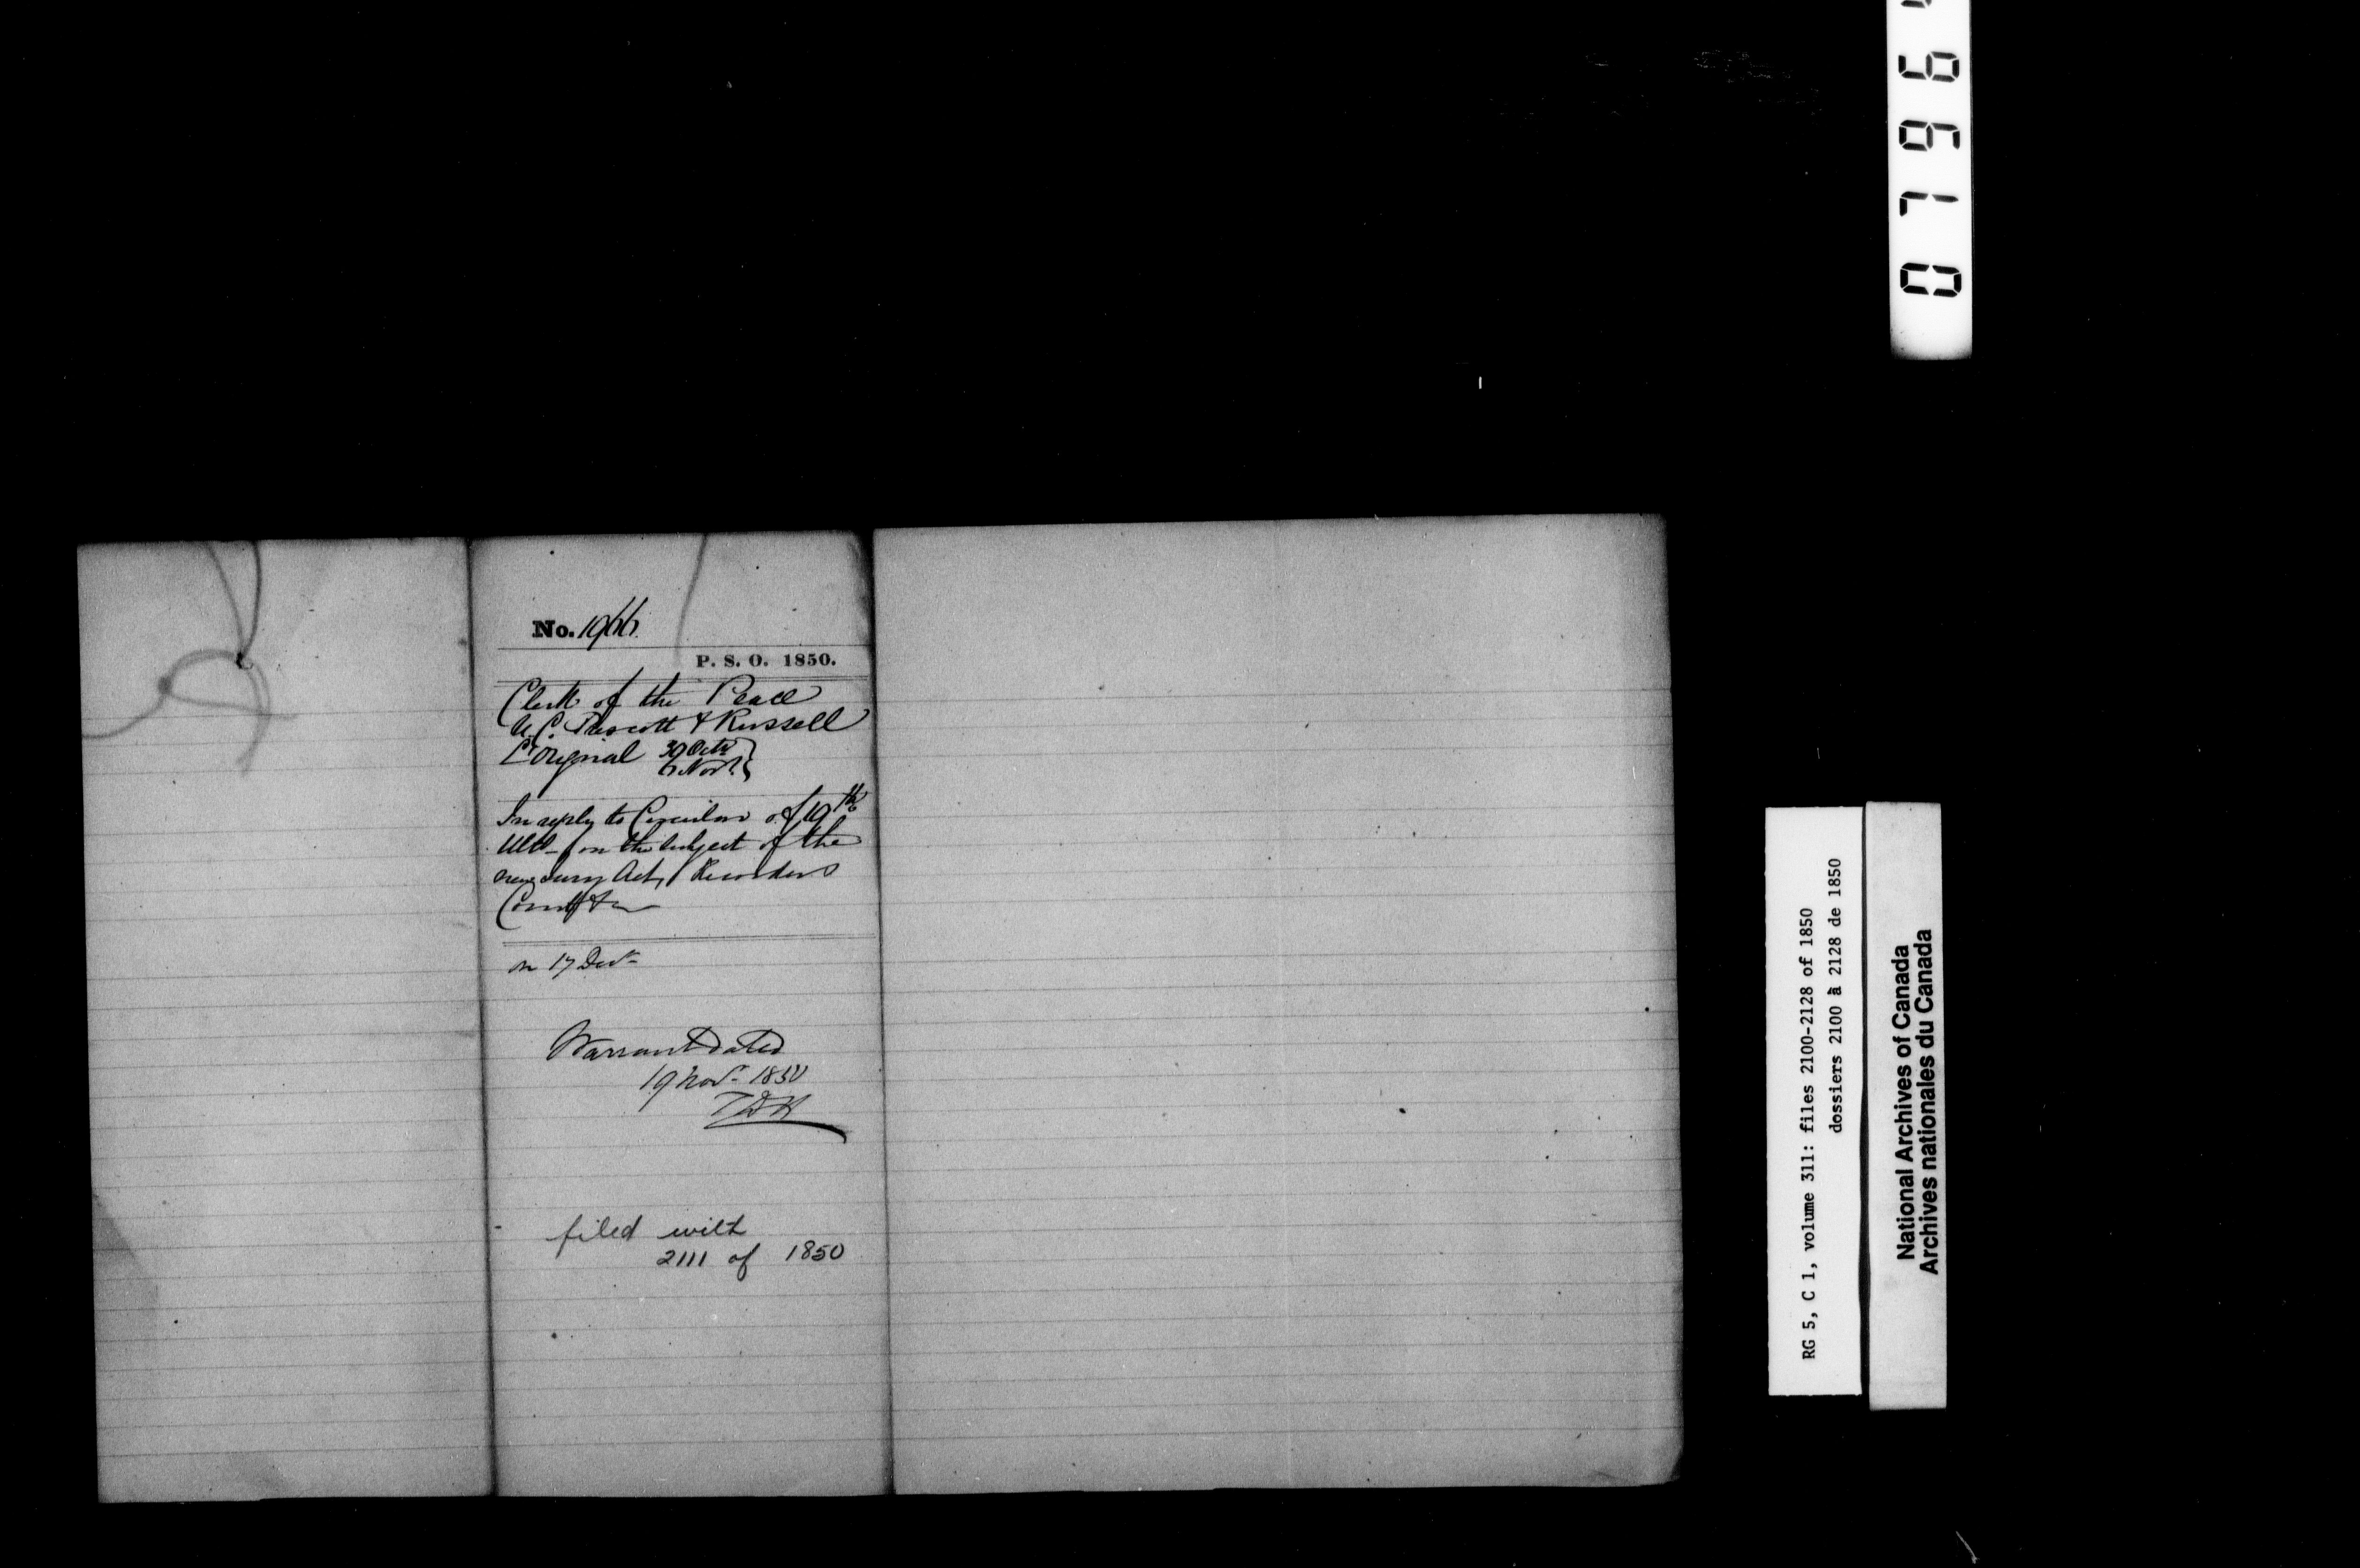 No. 1966
P. S. O. 1850.
Clerk of the Peace
U. C. Prescott & Russell
L'Orignal 30 Octr
6 Novr.
In reply to Circular of 19th
Ulto - on the subject of the
new Jury Act, Recorders
Court &c
on 17 Decr
Warrant dated
19 Novr. 1850
TDH
filed with
2111 of 1850
RG 5, C 1, volume 311: files 2100-2128 of 1850
dossiers 2100 à 2128 de 1850
National Archives of Canada
Archives nationales du Canada
0796